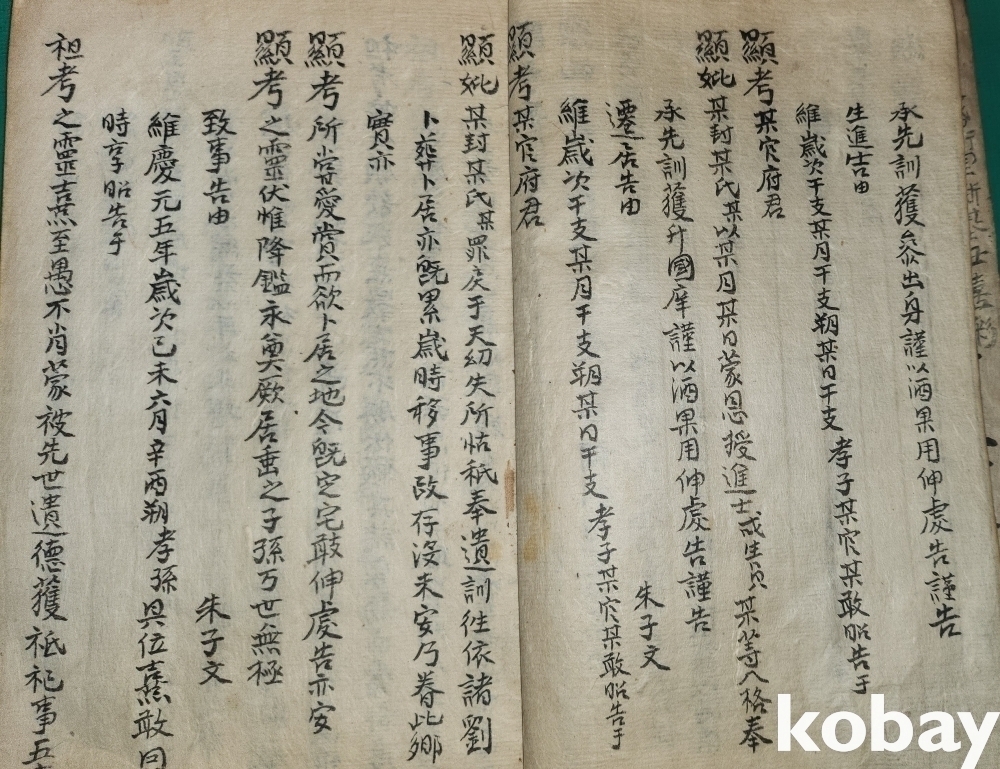 承先訓獲叅出身謹以酒果用伸虔告謹告
生進告由
維歲次干支某月干支朔某日干支 孝子某官某敢昭告于
顯考某官府君
顯妣某封某氏某以某月某日蒙恩授進士或生員某等入格奉
承先訓獲升國庠謹以酒果用伸虔告謹告
遷居告由 朱子文
維歲次干支某月干支朔某日干支 孝子某官某敢昭告于
顯考某官府君
顯妣某封某氏某罪戾于天幼失所怙秖奉遺訓徃依諸劉
卜葬卜居亦旣累歲時移事改存沒未安乃眷此鄉
實亦
顯考所嘗愛賞而欲卜居之地今旣定宅敢伸虔告亦安
顯考之靈伏惟降鑑永奠厥居垂之子孫万世無極
致事告由 朱子文
維慶元五年歲次己未六月辛酉朔孝孫具位熹敢因
時享昭告于
祖考之靈熹至愚不肖蒙被先世遺德獲祗祀事五
kobay